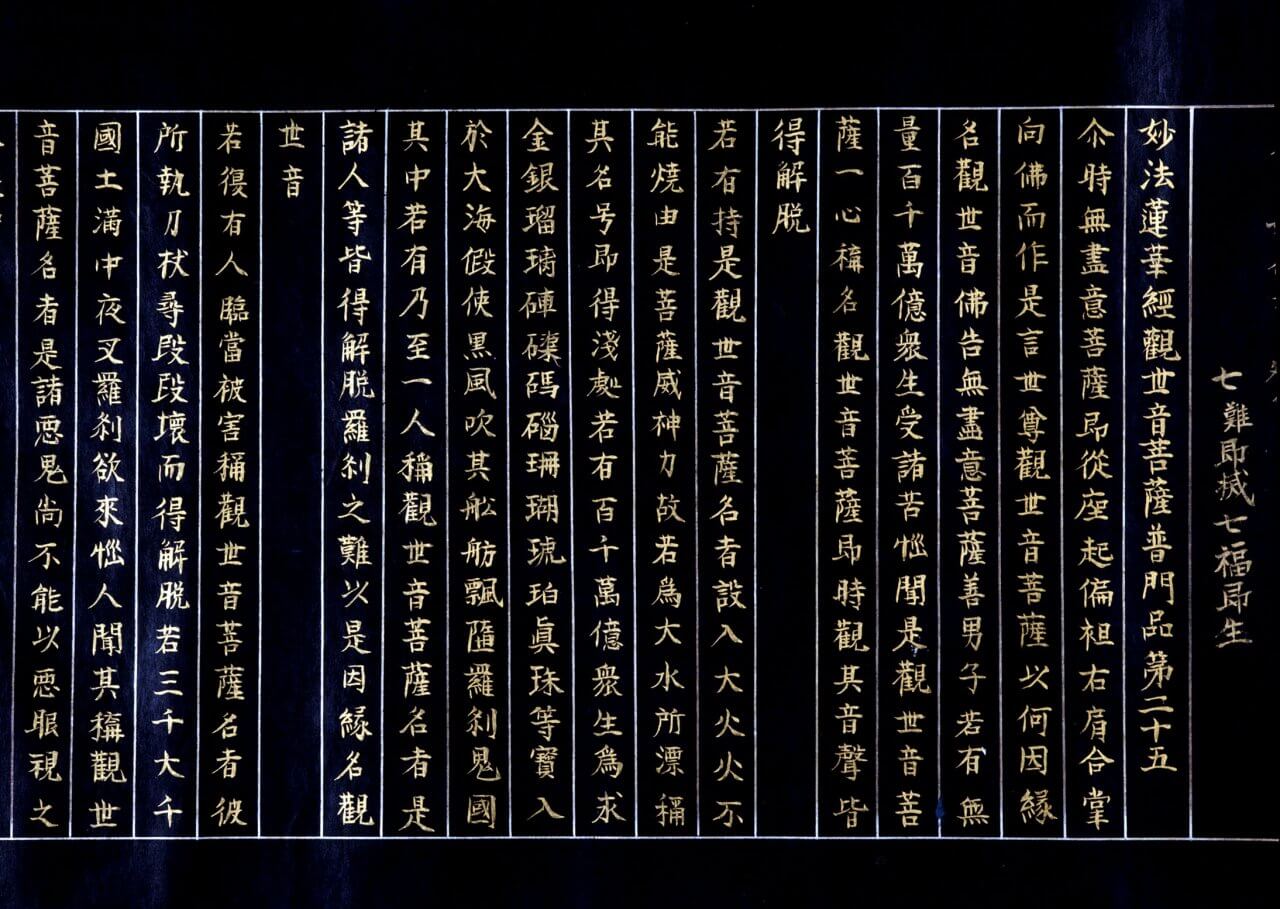 七難即滅七福即生
妙法蓮華經觀世音菩薩普門品第二十五
尒時無盡意菩薩即從座起偏袒右肩合掌
向佛而作是言世尊觀世音菩薩以何因緣
名觀世音佛告無盡意菩薩善男子若有無
量百千萬億衆生受諸苦惱聞是觀世音菩
薩一心稱名觀世音菩薩即時觀其音聲皆
得解脱
若有持是觀世音菩薩名者設入大火火不
能燒由是菩薩威神力故若為大水所漂稱
其名号即得淺處若有百千萬億衆生為求
金銀瑠璃硨磲碼碯珊瑚琥珀真珠等寶入
於大海假使黒風吹其舩舫飄墮羅刹鬼國
其中若有乃至一人稱觀世音菩薩名者是
諸人等皆得解脱羅刹之難以是因緣名觀
世音
若復有人臨當被害稱觀世音菩薩名者彼
所執刀杖尋段段壞而得解脱若三千大千
國土滿中夜叉羅刹欲來惱人聞其稱觀世
音菩薩名者是諸惡鬼尚不能以惡眼視之